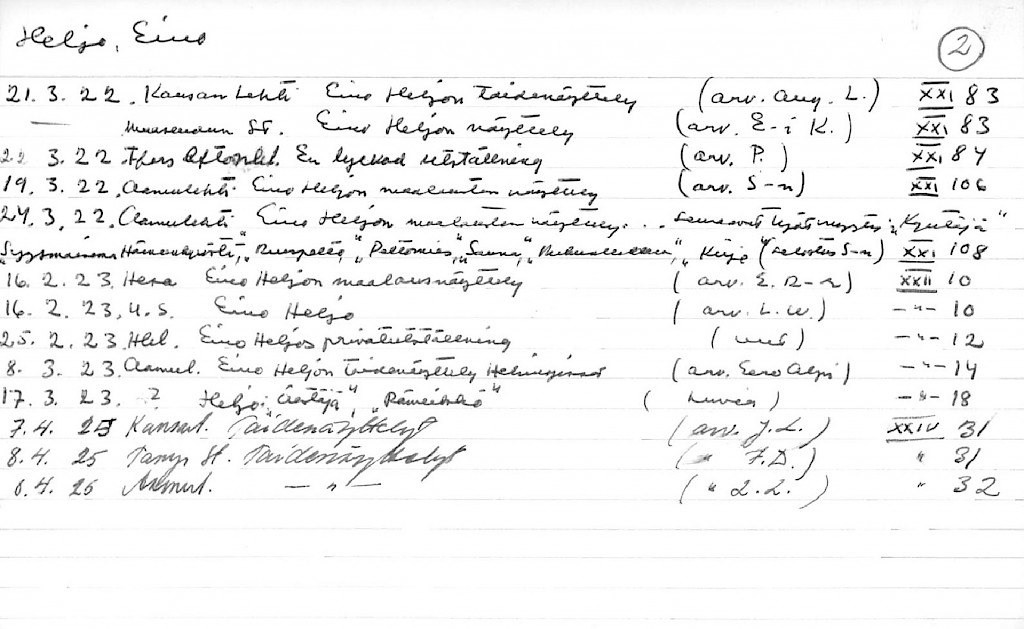 Heljo, Eino
2
21. 3. 22. Kansan Lehti Eino Heljon taidenäyttely (arv. Aug. L.) XXI 83
— St. Eino Heljon näyttely (arv. E-i K.) XXI 83
22 3. 22 Tfors Aftonbl. En lyckad utställning (arv. P.) XXI 84
19. 3. 22. Aamulehti Eino Heljon maalausten näyttely (arv. S-n) XXI 106
24. 3. 22. Aamulehti Eino Heljon maalausten näyttely... seuraavat työt myyty: "Kyntäjä"
"Hämeenkyröstä", "Peltomies", "Sauna", "Kirje" (selostus S-n) XXI 108
16. 2. 23. Eino Heljon maalausnäyttely (arv. E. R-r) XXII 10
16. 2. 23. U.S. Eino Heljo (arv. L. W.) -"- 10
25. 2. 23. Hbl. Eino Heljos privatutställning -"- 12
8. 3. 23. Aamul. Eino Heljon taidenäyttely Helsingissä (arv. Eero Alpi) -"- 14
17. 3. 23. ? Heljo: "Äestäjä", (kuvia) -"- 18
7. 4. 25 Kansanl. Taidenäyttelyt (arv. J. L.) XXIV 31
8. 4. 25 Tamp. St. Taidenäyttelyt (" F. D.) " 31
8. 4. 25 Aamul. -"- (" L. L.) " 32